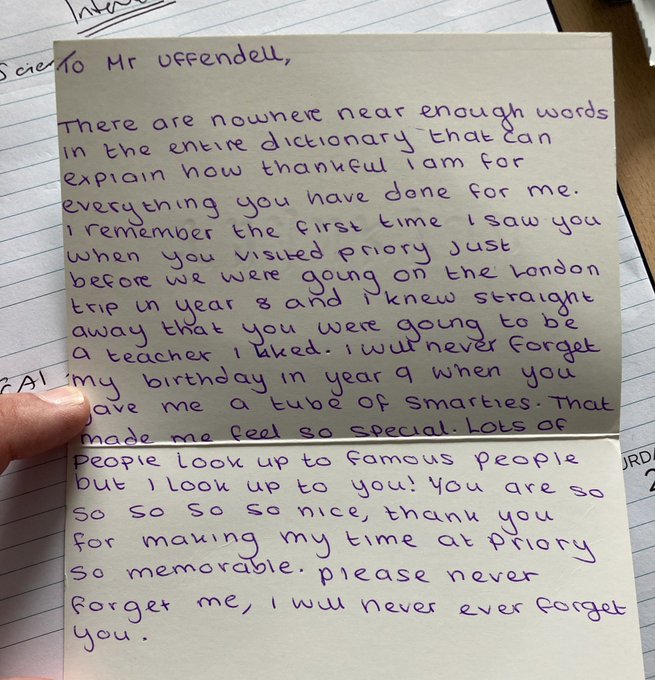 To Mr Uffendell,
There are nowhere near enough words
in the entire dictionary that can
explain how thankful i am for
everything you have done for me.
I remember the first time I saw you
when you visited priory just
before we were going on the London
trip in year 8 and i knew straight
away that you were going to be
a teacher I liked. I will never forget
my birthday in year 9 when you
gave me a tube of smarties. That
made me feel so special. Lots of
people look up to famous people
but I look up to you! You are so
so so so so nice, thank you
for making my time at priory
so memorable. please never
forget me, i will never ever forget
you.